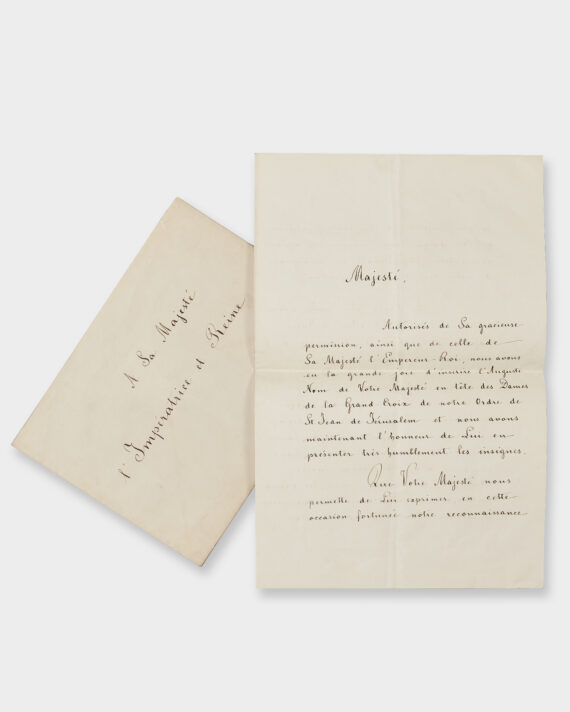 A Sa Majesté
l'Impératrice et Reine
Majesté,
Autorisés de Sa gracieuse
permission, ainsi que de celle de
Sa Majesté l'Empereur-Roi, nous avons
eu la grande joie d'inscrire l'Auguste
Nom de Votre Majesté en tête des Dames
de la Grand Croix de notre Ordre de
St Jean de Jérusalem et nous avons
maintenant l'honneur de Lui en
présenter très humblement les insignes.
Que Votre Majesté nous
permette de Lui exprimer en cette
occasion fortunée notre reconnaissance